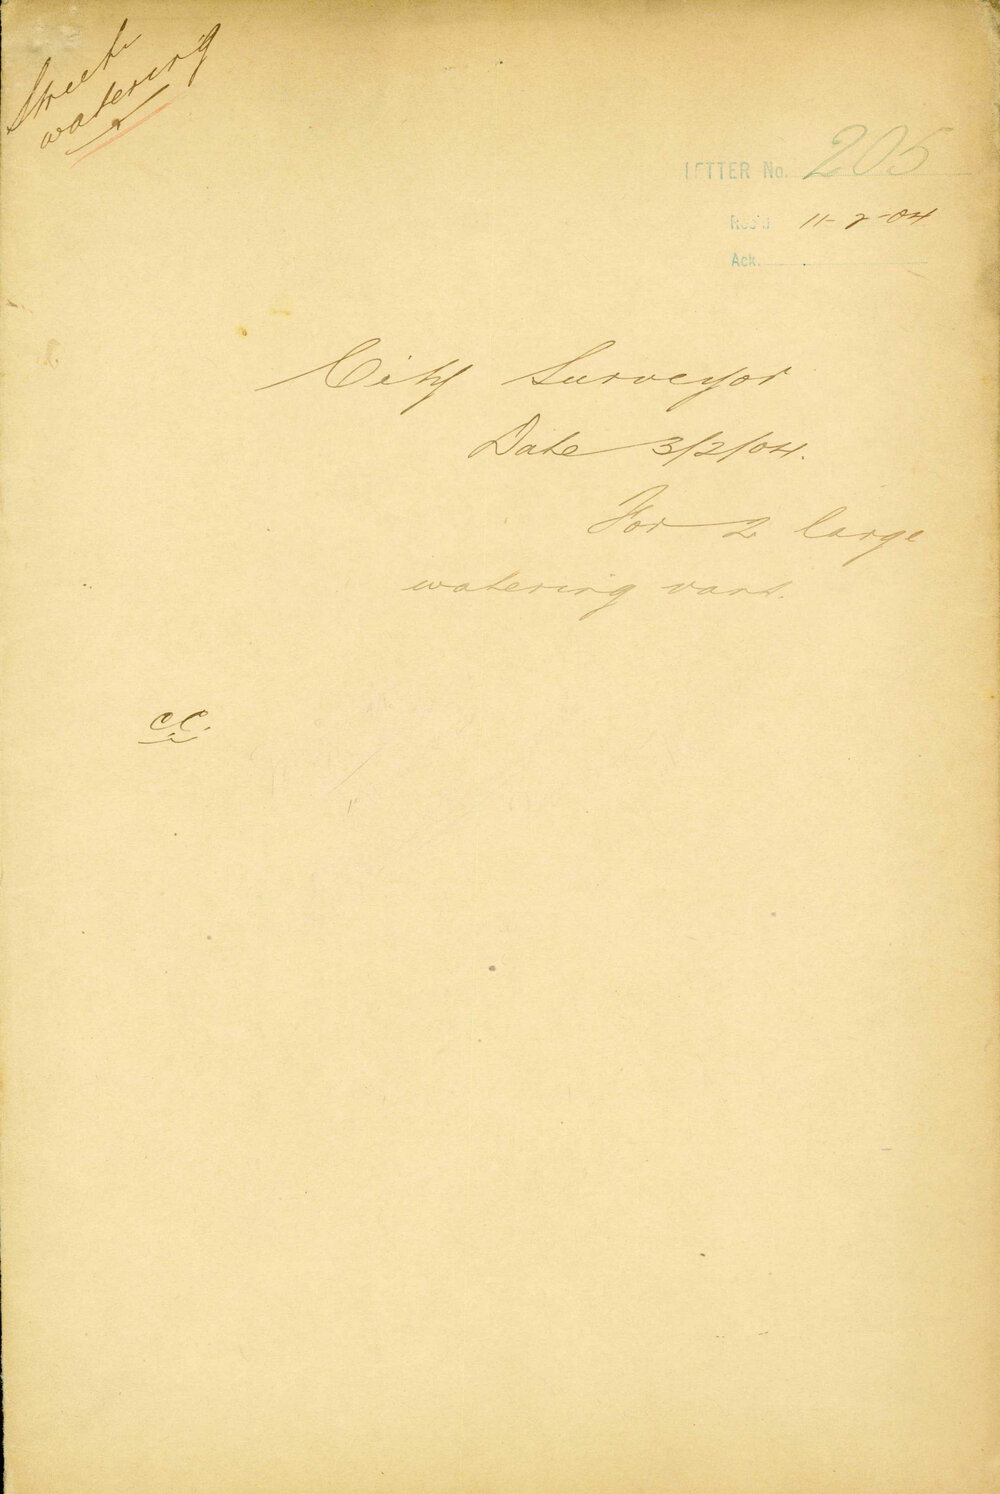 Street
watering
LETTER No. 205
Rec'd 11-2-04
Ack.
City Surveyor
Date 3/2/04.
For 2 large
watering vans.
CC.